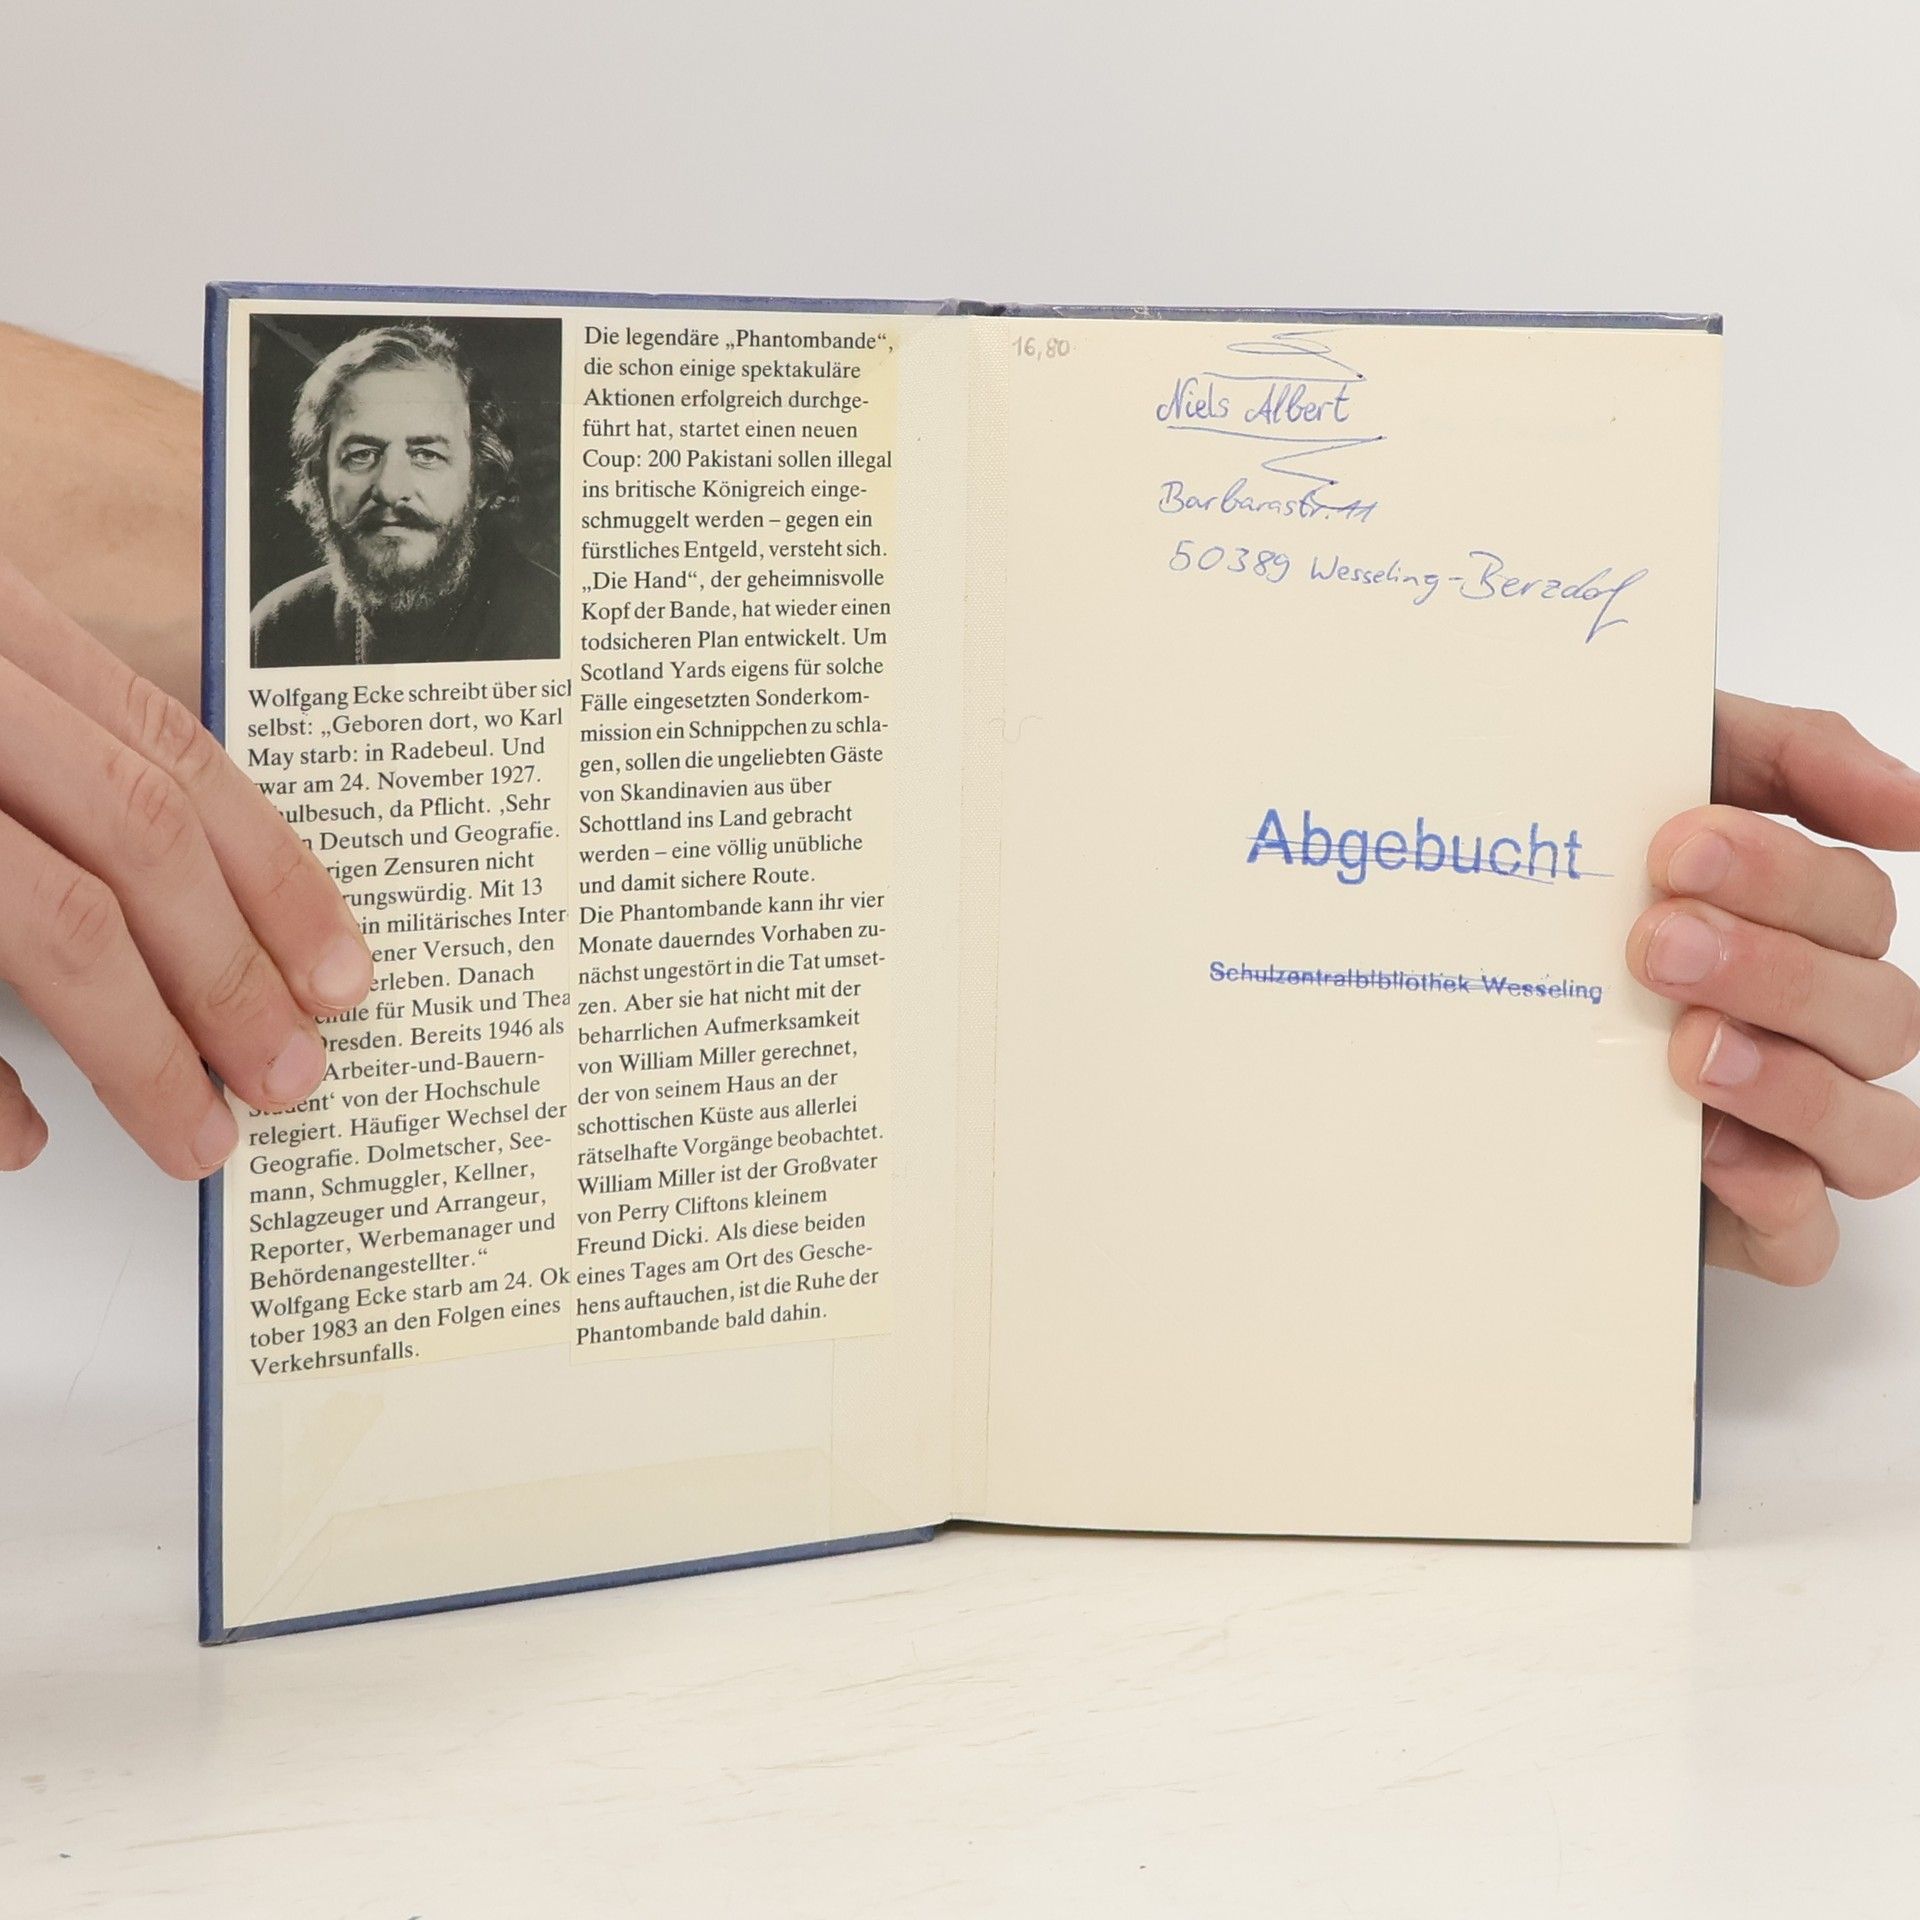 Wolfgang Ecke schreibt über sich
selbst: „Geboren dort, wo Karl
May starb: in Radebeul. Und
war am 24. November 1927.
ulbesuch, da Pflicht. ‚Sehr
Deutsch und Geografie.
rigen Zensuren nicht
rungswürdig. Mit 13
in militärisches Inter-
ener Versuch, den
erleben. Danach
für Musik und Thea
Dresden. Bereits 1946 als
Arbeiter-und-Bauern-
Student‘ von der Hochschule
relegiert. Häufiger Wechsel der
Geografie. Dolmetscher, See-
mann, Schmuggler, Kellner,
Schlagzeuger und Arrangeur,
Reporter, Werbemanager und
Behördenangestellter.“
Wolfgang Ecke starb am 24. Ok
tober 1983 an den Folgen eines
Verkehrsunfalls.
Die legendäre „Phantombande“,
die schon einige spektakuläre
Aktionen erfolgreich durchge-
führt hat, startet einen neuen
Coup: 200 Pakistani sollen illegal
ins britische Königreich einge-
schmuggelt werden – gegen ein
fürstliches Entgeld, versteht sich.
„Die Hand“, der geheimnisvolle
Kopf der Bande, hat wieder einen
todsicheren Plan entwickelt. Um
Scotland Yards eigens für solche
Fälle eingesetzten Sonderkom-
mission ein Schnippchen zu schla-
gen, sollen die ungeliebten Gäste
von Skandinavien aus über
Schottland ins Land gebracht
werden – eine völlig unübliche
und damit sichere Route.
Die Phantombande kann ihr vier
Monate dauerndes Vorhaben zu-
nächst ungestört in die Tat umset-
zen. Aber sie hat nicht mit der
beharrlichen Aufmerksamkeit
von William Miller gerechnet,
der von seinem Haus an der
schottischen Küste aus allerlei
rätselhafte Vorgänge beobachtet.
William Miller ist der Großvater
von Perry Cliftons kleinem
Freund Dicki. Als diese beiden
eines Tages am Ort des Gesche-
hens auftauchen, ist die Ruhe der
Phantombande bald dahin.
16,80
Niels Albert
Barbarastr. 11
50389 Wesseling-Berzdorf
Abgebucht
Schulzentralbibliothek Wesseling